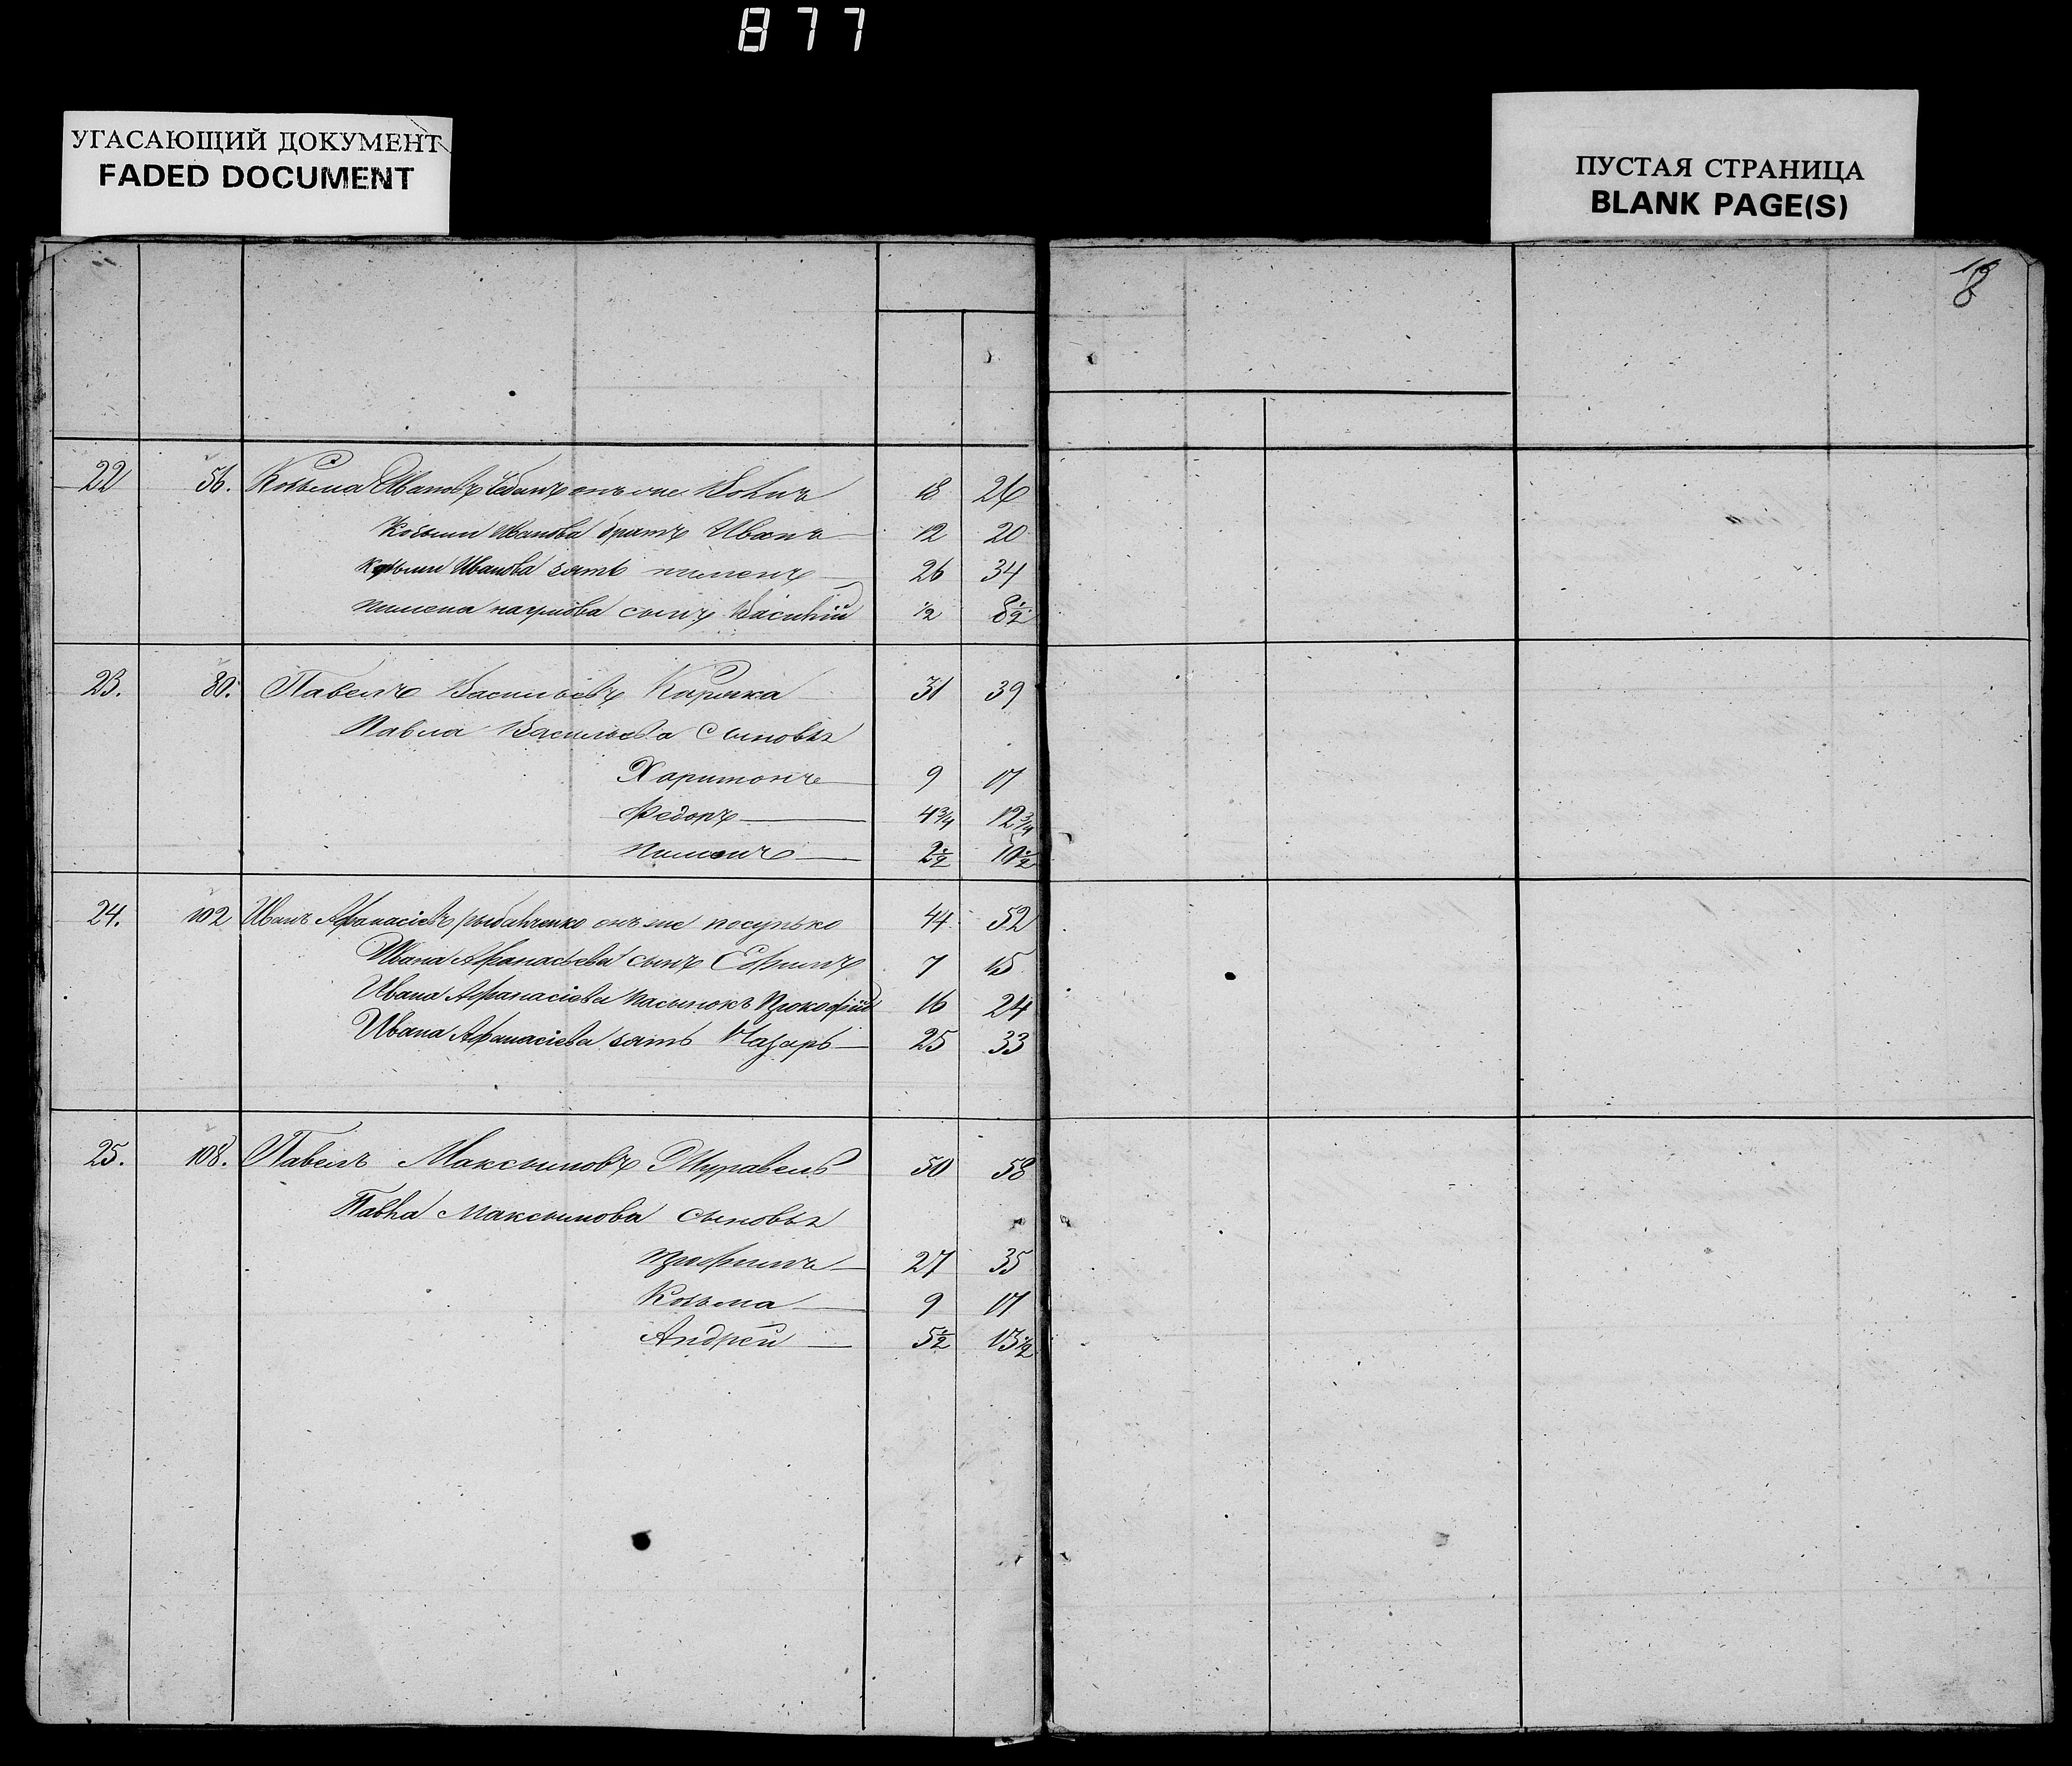 877
УГАСАЮЩИЙ ДОКУМЕНТ
FADED DOCUMENT
ПУСТАЯ СТРАНИЦА
BLANK PAGE(S)
18
22 56. Козьма Ивановъ Чебанъ онъ же Волкъ 18 26
Козьмы Иванова братъ Иванъ 12 20
Козьмы Иванова зять Пименъ 26 34
Пимена Наумова сынъ Василій 1/2 8 1/2
23. 80. Павелъ Васильевъ Каряка 31 39
Павла Васильева сыновья
Харитонъ 9 17
Федоръ 4 3/4 12 3/4
Пименъ 2 1/2 10 1/2
24. 102 Иванъ Афанасіевъ онъ же 44 52
Ивана Афанасьева сынъ Ефимъ 7 15
Ивана Афанасіева пасынокъ Прокофій 16 24
Ивана Афанасіева зять Назаръ 25 33
25. 108. Павелъ Максимовъ Журавель 50 58
Павла Максимова сыновья
Трофимъ 27 35
Козьма 9 17
Андрей 5 1/2 13 1/2